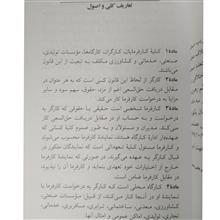 تعاریف کلی و اصول
ماده۱ کلیه کارفرمایان، کارگران، کارگاهها، مؤسسات تولیدی،
صنعتی، خدماتی و کشاورزی مکلف به تبعیت از این قانون
می‌باشند.
ماده۲ کارگر از لحاظ این قانون کسی است که به هر عنوان در
مقابل دریافت حق‌السعی اعم از مزد، حقوق، سهم سود و سایر
مزایا به درخواست کارفرما کار می‌کند.
ماده۳ کارفرما شخصی است حقیقی یا حقوقی که کارگر به
درخواست و به حساب او در مقابل دریافت حق‌السعی کار
می‌کند. مدیران و مسئولان و به طور عموم کلیه کسانی که
عهده‌دار اداره کارگاه هستند، نماینده کارفرما محسوب می‌شوند
و کارفرما مسئول کلیه تعهداتی است که نمایندگان مذکور در
قبال کارگر به عهده می‌گیرند. در صورتی که نماینده کارفرما
خارج از اختیارات خود تعهدی بنماید و کارفرما آن را نپذیرد،
در مقابل کارفرما ضامن است.
ماده۴ کارگاه محلی است که کارگر به درخواست کارفرما یا
نماینده او در آنجا کار می‌کند، از قبیل مؤسسات صنعتی،
کشاورزی، معدنی، ساختمانی، ترابری، مسافربری، خدماتی،
تجاری، تولیدی، اماکن عمومی و امثال آنها.